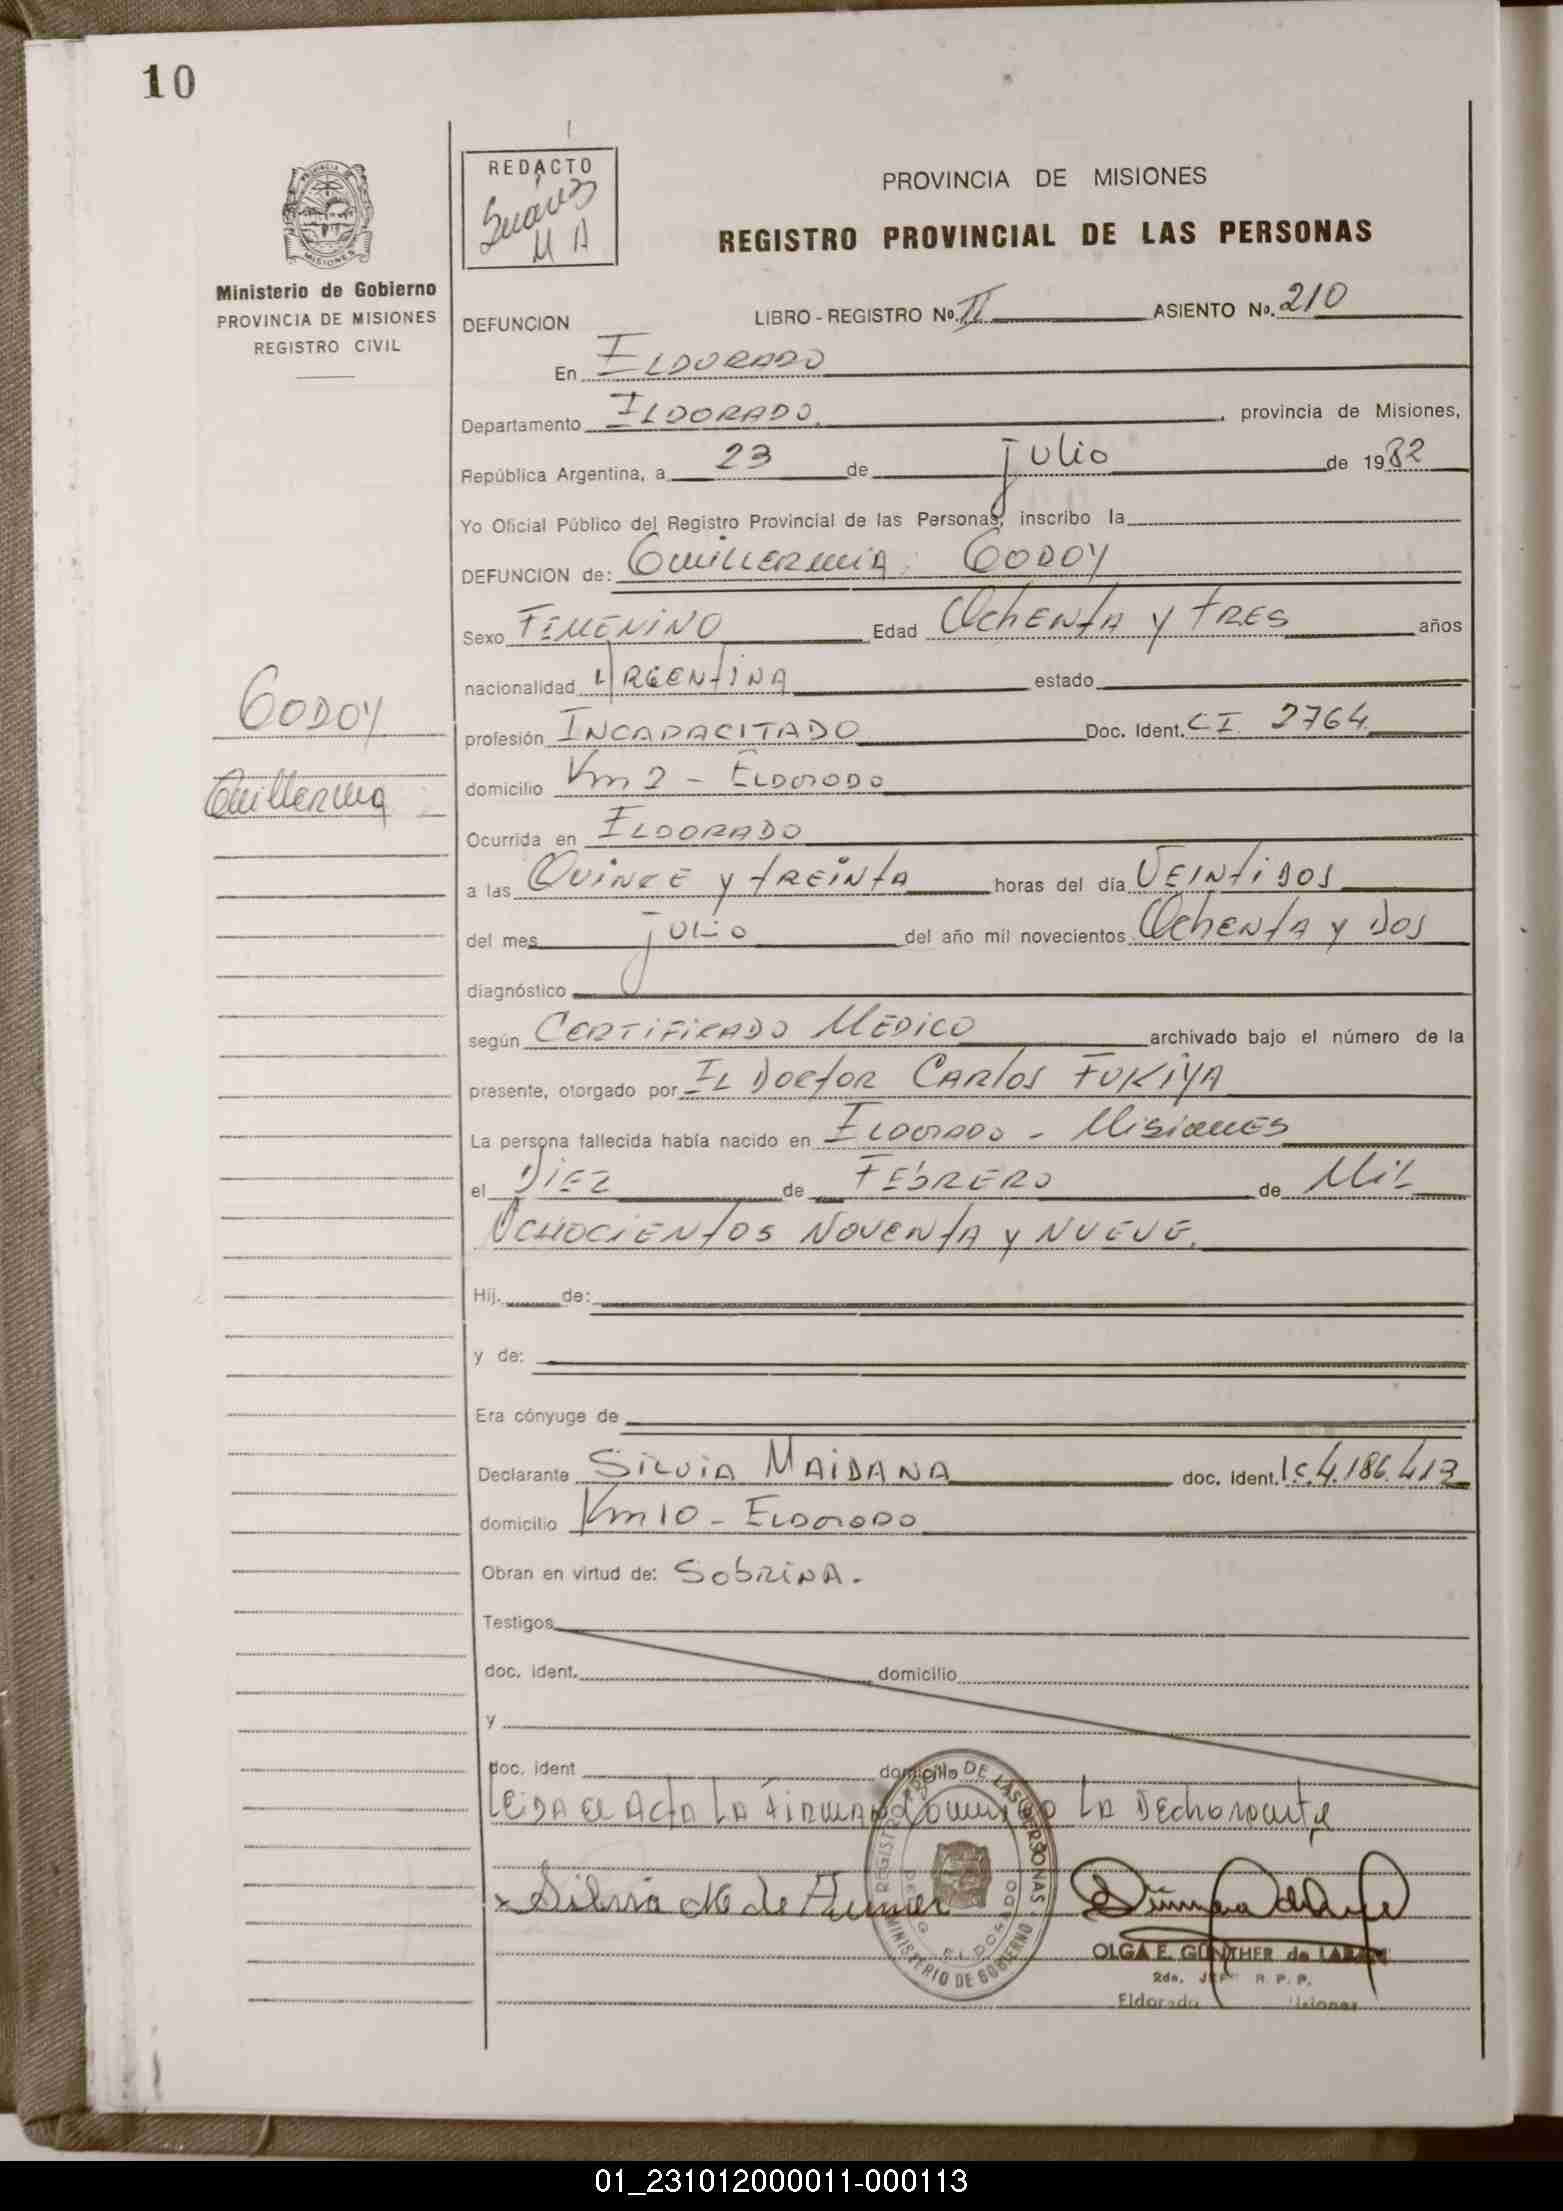 10
REDACTO
Suárez
M A
PROVINCIA DE MISIONES
REGISTRO PROVINCIAL DE LAS PERSONAS
Ministerio de Gobierno
PROVINCIA DE MISIONES
REGISTRO CIVIL
DEFUNCION LIBRO - REGISTRO No. II ASIENTO No. 210
En ELDORADO
Departamento ELDORADO, provincia de Misiones,
República Argentina, a 23 de julio de 1982
Yo Oficial Público del Registro Provincial de las Personas, inscribo la
DEFUNCION de: Guillermia GODOY
Sexo FEMENINO Edad Ochenta y tres años
nacionalidad ARGENTINA estado
GODOY
Guillermia
profesión INCAPACITADO Doc. Ident. CI 2764
domicilio Km 2 - ELDORADO
Ocurrida en ELDORADO
a las Quince y treinta horas del día VEINTIDOS
del mes julio del año mil novecientos Ochenta y dos
diagnóstico
según CERTIFICADO MEDICO archivado bajo el número de la
presente, otorgado por EL Doctor Carlos FUKIYA
La persona fallecida había nacido en ELDORADO - Misiones
el DIEZ de FEBRERO de Mil
OCHOCIENTOS NOVENTA y NUEVE.
Hij. de:
y de:
Era cónyuge de
Declarante SILVIA MAIDANA doc. ident. l.c. 4.186.413
domicilio Km 10 - ELDORADO
Obran en virtud de: SOBRINA.
Testigos
doc. ident. domicilio
y
doc. ident domicilio
LEIDA EL ACTA LA FIRMAN COnmigo LA DEClarante
Silvia M de
REGISTRO DE LAS PERSONAS
ELDORADO
MINISTERIO DE GOBIERNO
OLGA E. GUNTHER de
2da. JEF R. P. P.
Eldorado Misiones
01_231012000011-000113